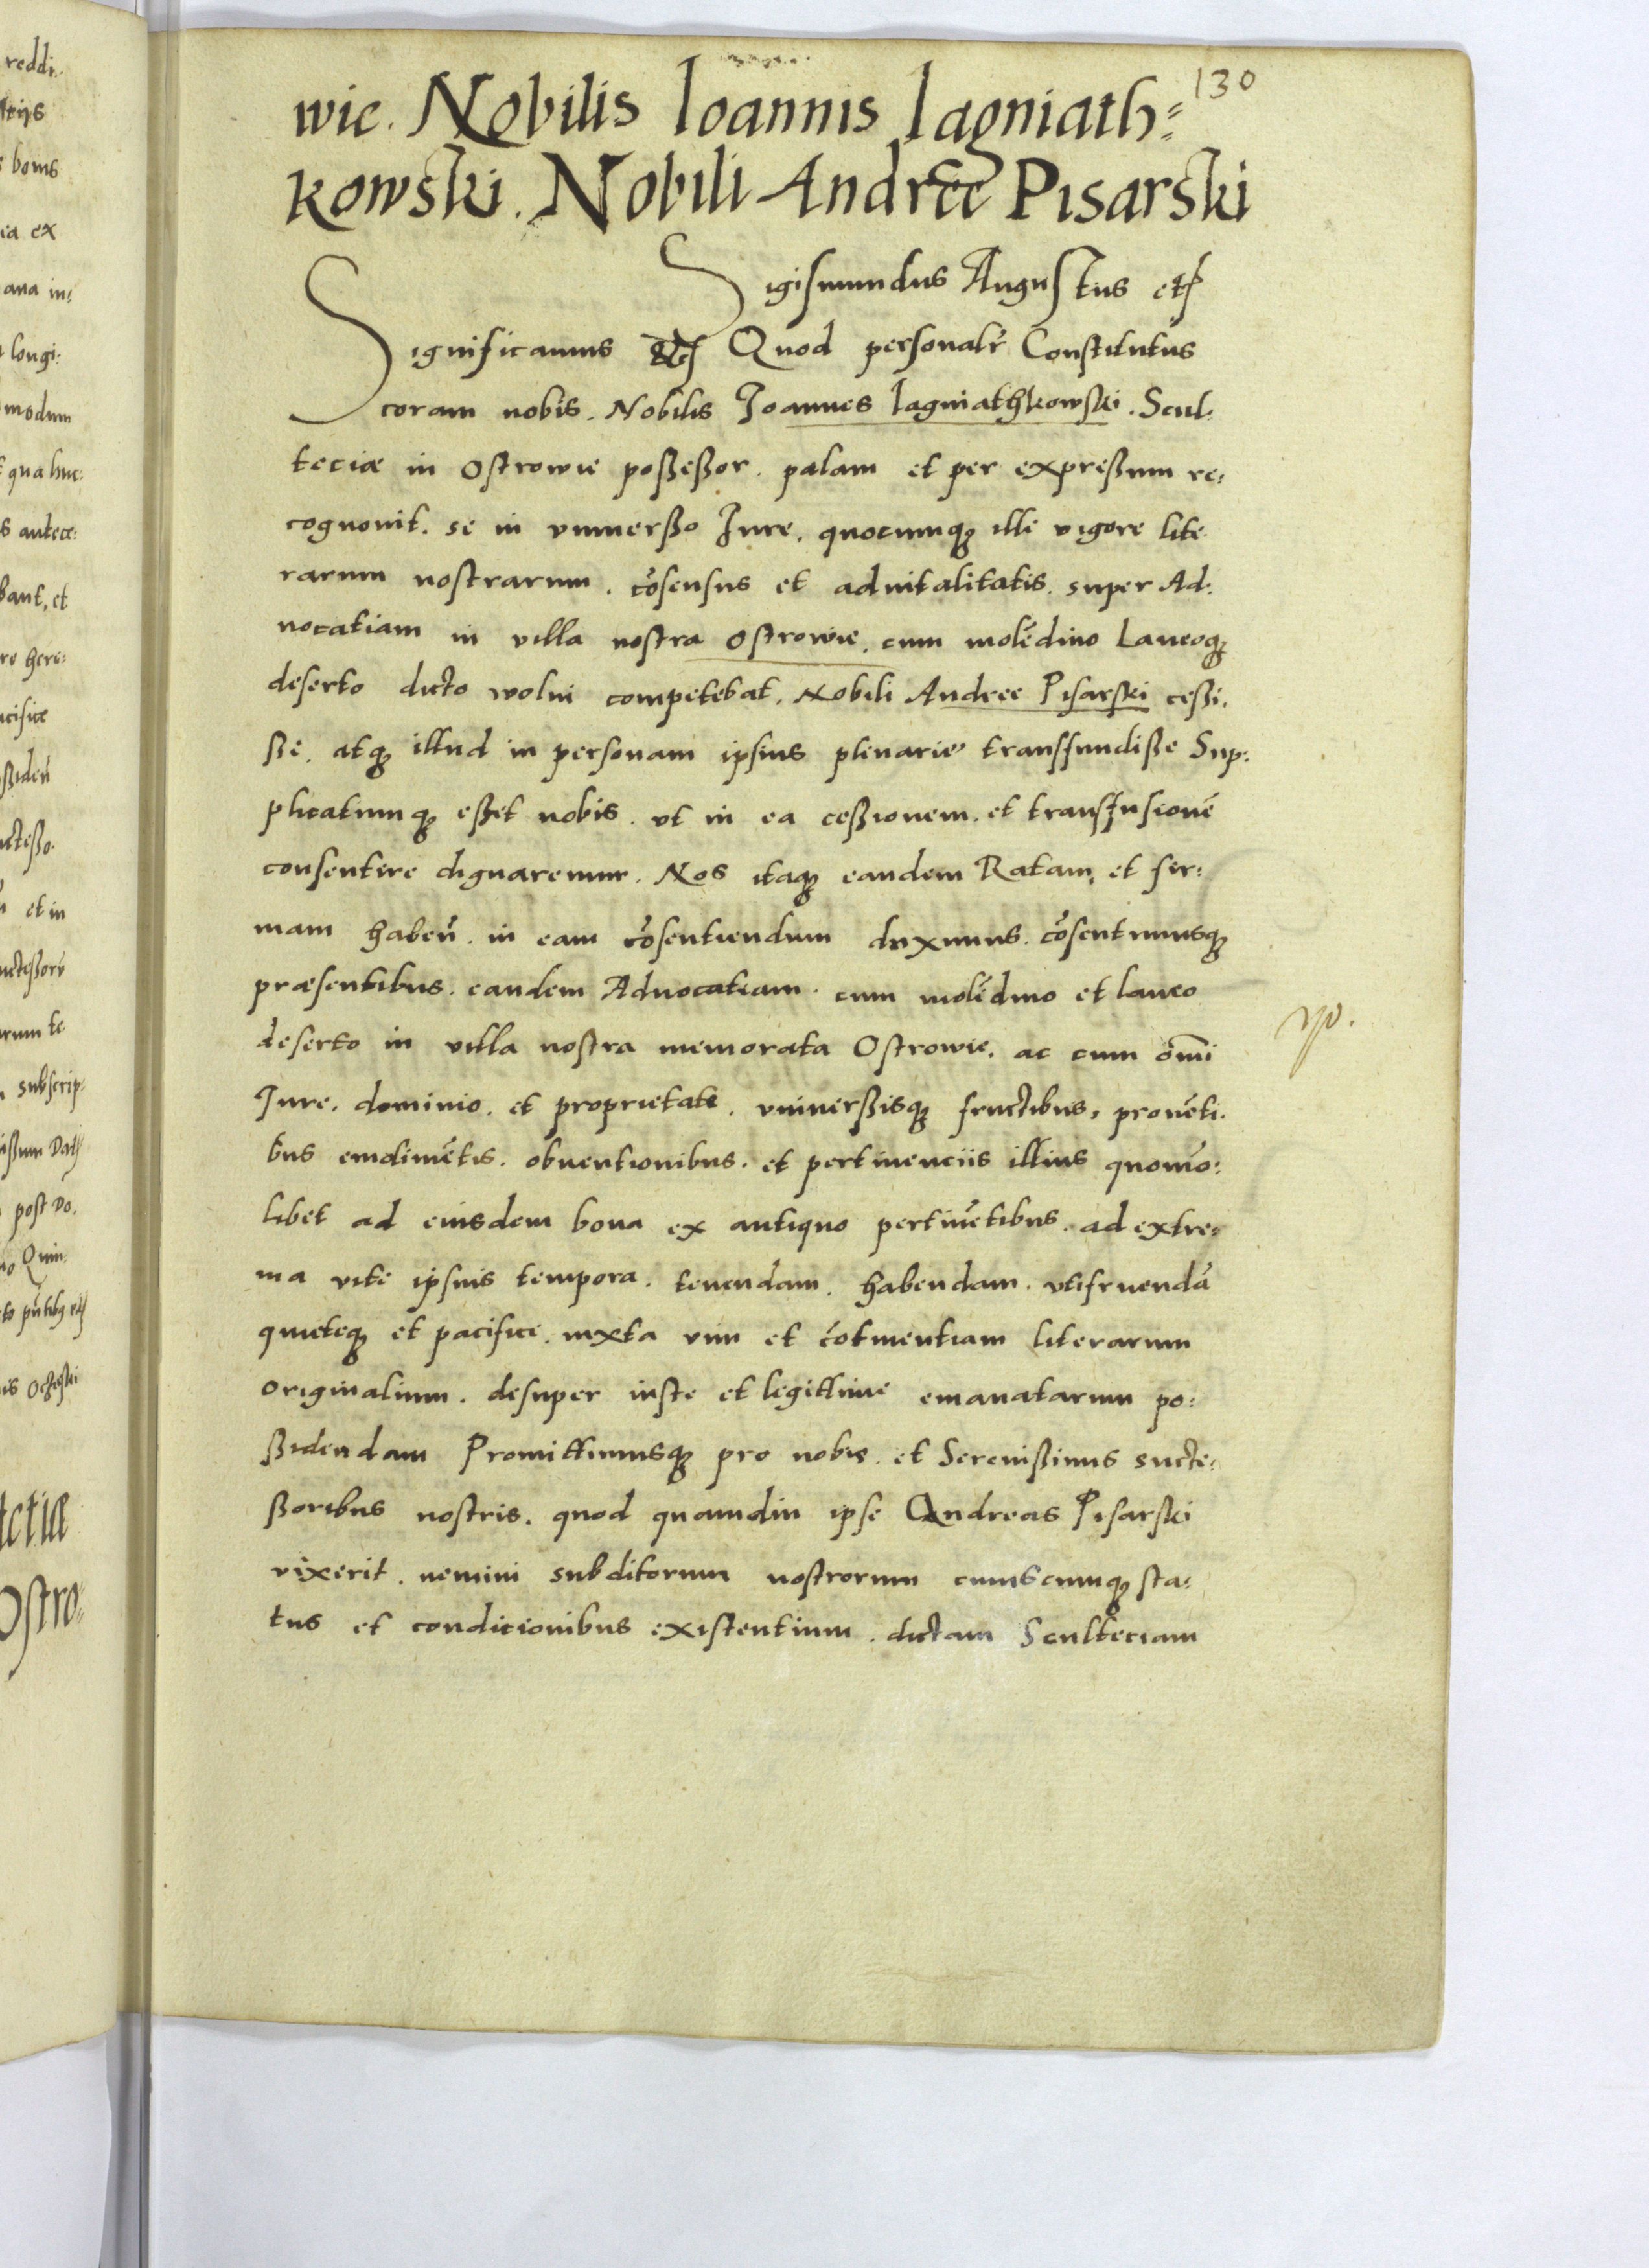 130
wie. Nobilis Ioannis Iagniath=
kowski. Nobili Andreæ Pisarski
Sigismundus Augustus etc
Significamus etc Quod personalr̃ Constitutus
coram nobis. Nobilis Joannes Iagniathkowski. Scul:
teciæ in Ostrowie poßeßor. palam et per expreßum re:
cognouit. se in vniuerßo Iure. quocumq₃ ille vigore lite
rarum nostrarum. cõsensus et aduitalitatis. super Ad:
uocatiam in villa nostra Ostrowie. cum molẽdino Laneoq₃
deserto dicto wolni competebat. Nobili Andree Pisarski ceßi.
ße. atq₃ illud in personam ipsius plenarie transfundiße Sup:
plicatumq₃ eßet nobis. vt in ea ceßionem. et transfusionẽ
consentire dignaremur. Nos itaq₃ eandem Ratam, et fir:
mam habeñ. in eam cõsentiendum duximus. cõsentimusq₃
præsentibus. eandem Aduocatiam. cum molẽdino et laneo
deserto in villa nostra memorata Ostrowie. ac cum om̃i
Iure. dominio. et proprietate. vniuerßisq₃ fructibus, prouẽti.
bus emolimẽtis. obuentionibus. et pertinenciis illius quomõ:
libet ad eiusdem bona ex antiquo pertinẽtibus. ad extre:
ma vite ipsius tempora. tenendam. habendam. vtifruendã
quieteq₃ et pacifice. iuxta vim et cõtinentiam literarum
originalium. desuper iuste et legittime emanatarum po:
ßidendam Promittimusq₃ pro nobis. et Serenißimis succe:
ßoribus nostris. quod quamdiu ipse Andreas Pisarski
vixerit. nemini subditorum nostrorum cuiuscumq₃ sta:
tus et condicionibus existentium. dictam Sculteciam